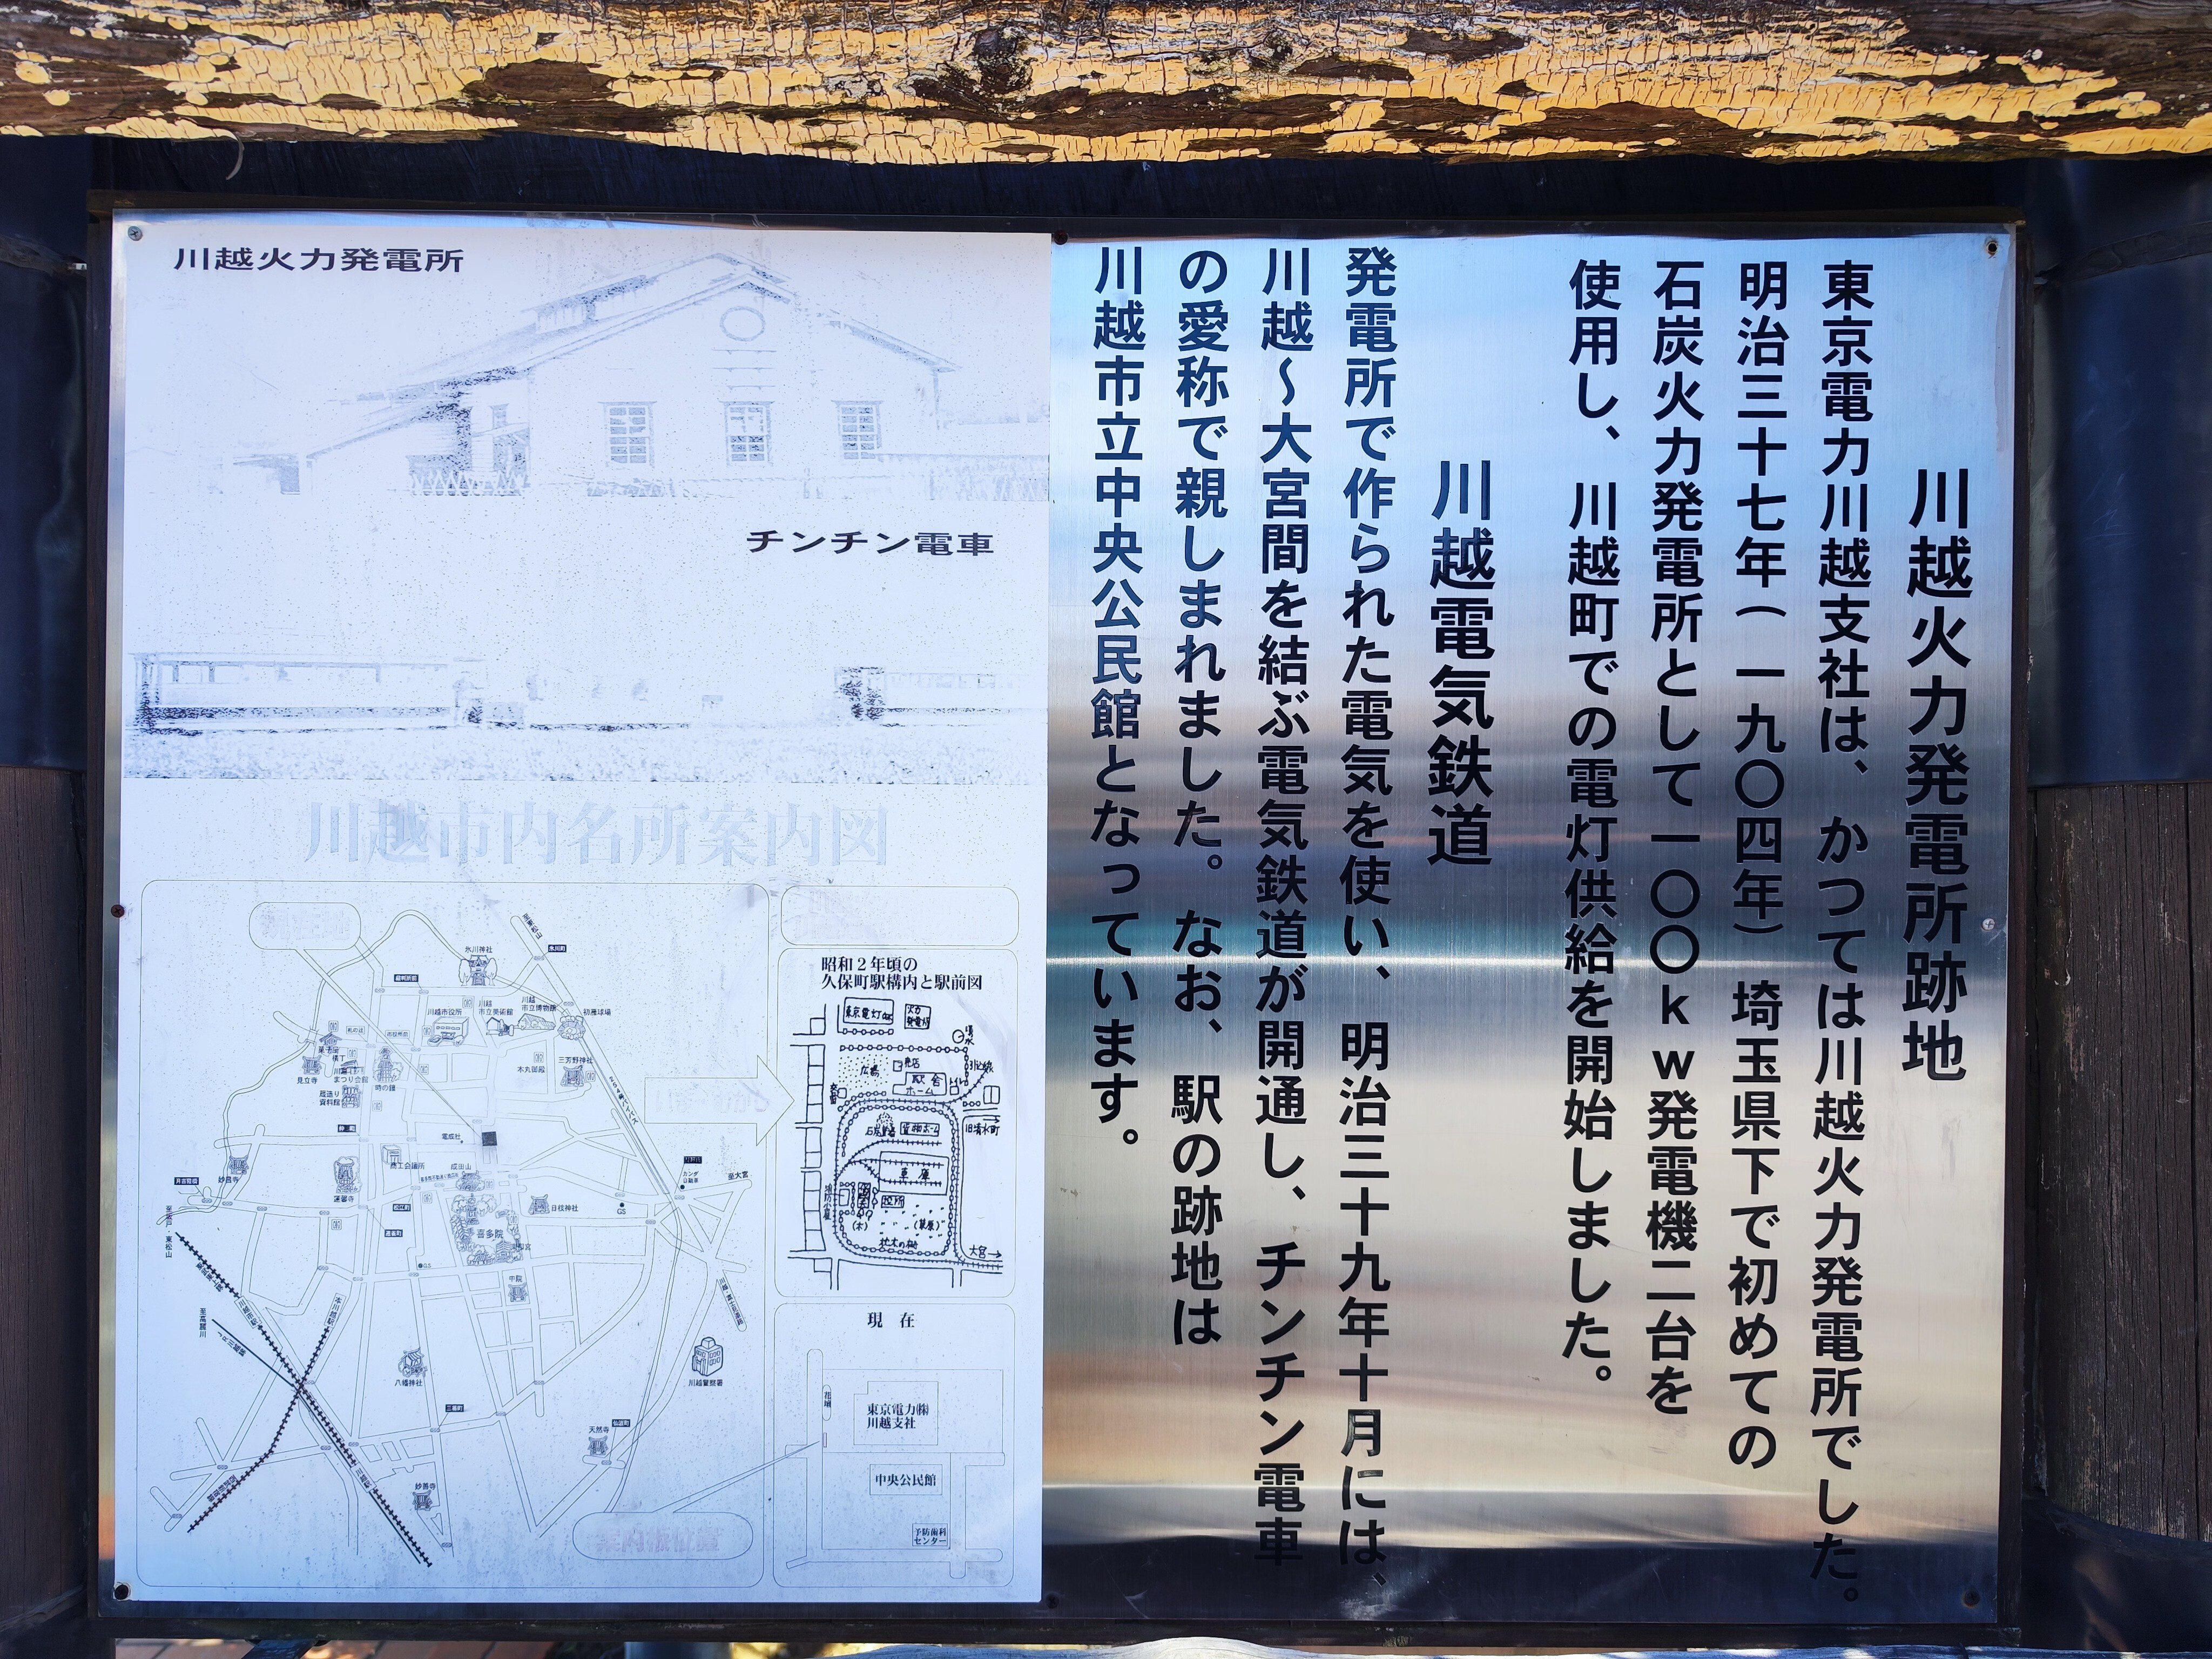 川越火力発電所跡地
東京電力川越支社は、かつては川越火力発電所でした。
明治三十七年(一九〇四年)埼玉県下で初めての
石炭火力発電所として一〇〇kw発電機二台を
使用し、川越町での電灯供給を開始しました。
川越電気鉄道
発電所で作られた電気を使い、明治三十九年十月には、
川越~大宮間を結ぶ電気鉄道が開通し、チンチン電車
の愛称で親しまれました。なお、駅の跡地は
川越市立中央公民館となっています。
川越火力発電所
チンチン電車
川越市内名所案内図
氷川神社
川越市役所
川越
市立美術館
川越
市立博物館
初雁球場
菓子屋
横丁
見立寺
まつり会館
時の鐘
蔵造り
資料館
三芳野神社
本丸御殿
電成社
商工会議所
成田山
妙善寺
蓮馨寺
喜多院
日枝神社
中院
GS
至大宮
至高麗川
八幡神社
川越警察署
天然寺
妙善寺
昭和2年頃の
久保町駅構内と駅前図
東京電灯㈱
火力
発電所
売店
広場
駅舎
ホーム
トイレ
引込線
貨物ホーム
旧清水町
車庫
(木)
(草原)
大宮→
現在
花壇
東京電力㈱
川越支社
中央公民館
予防歯科
センター